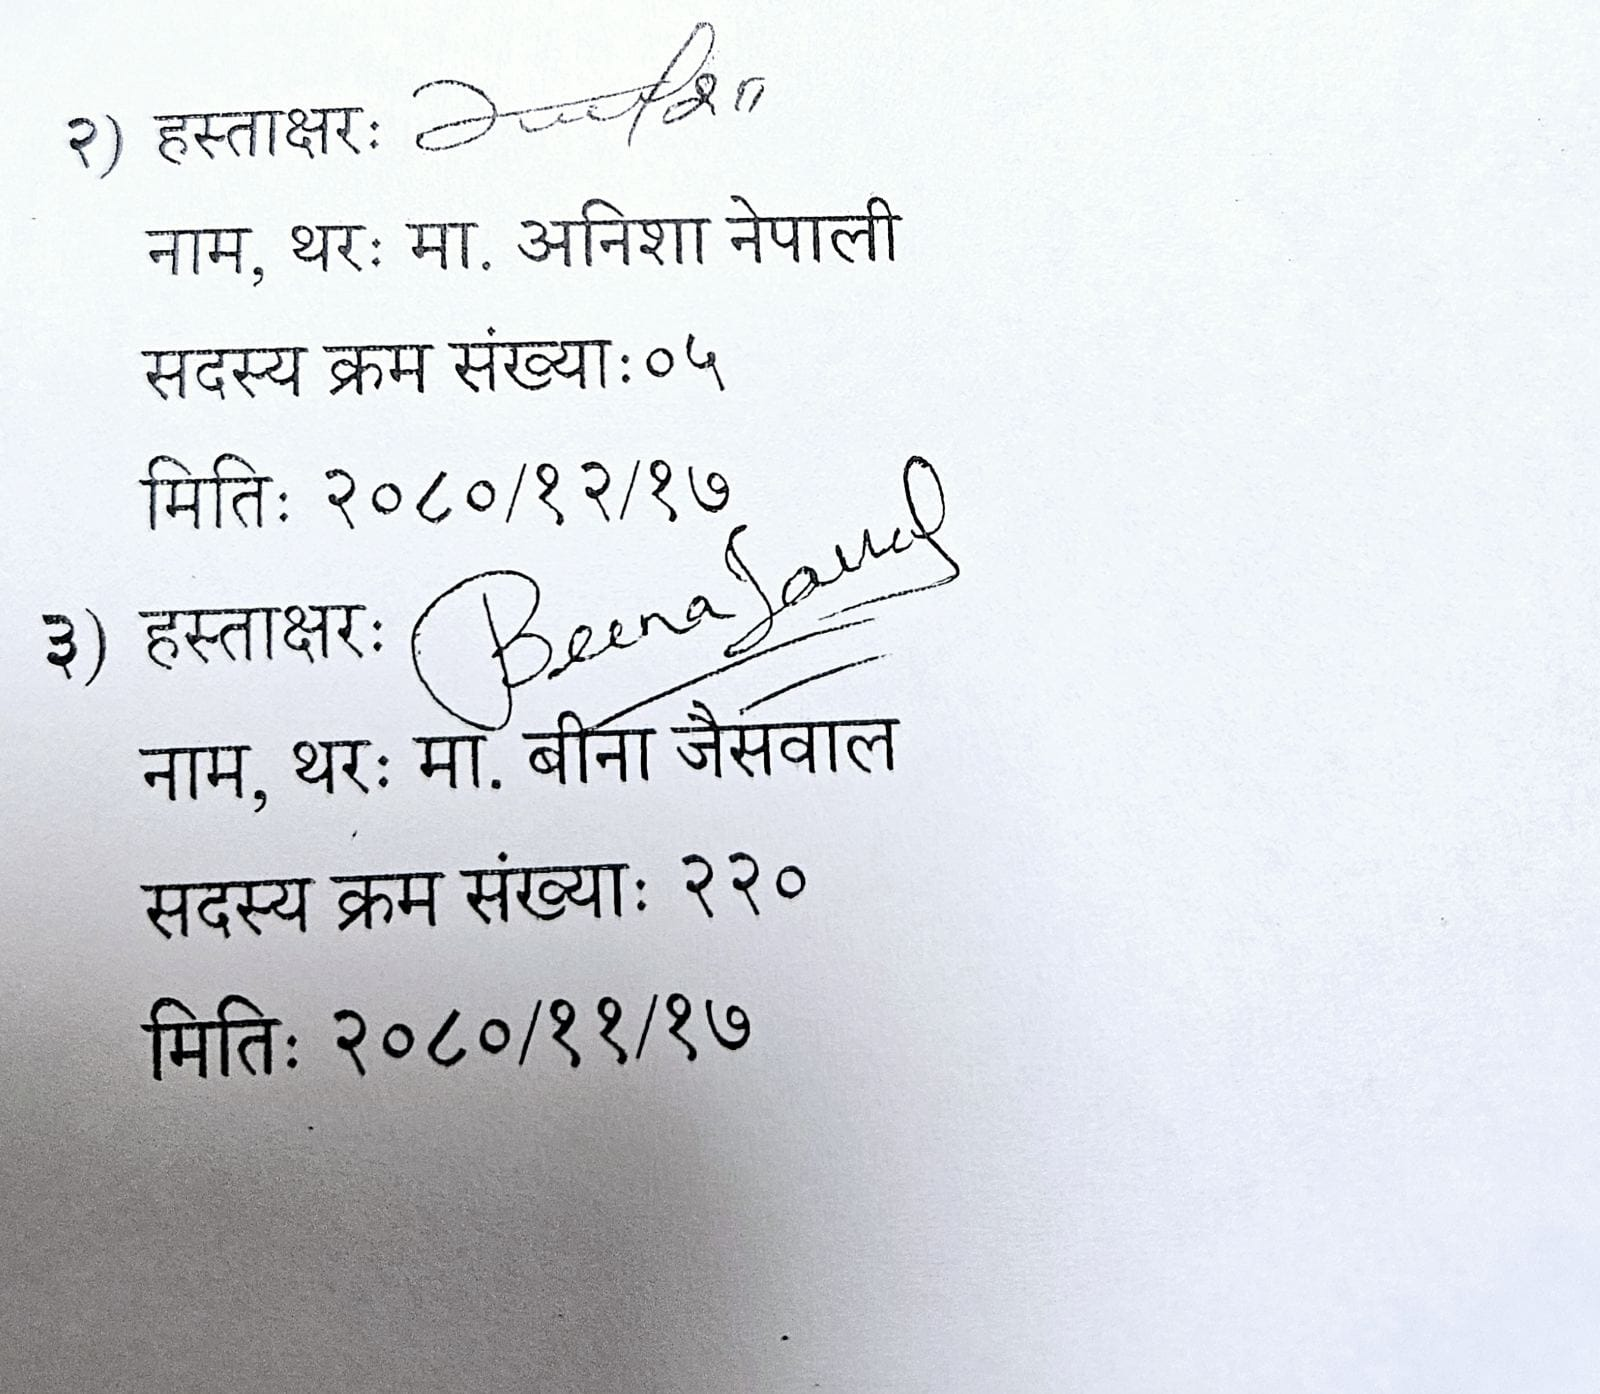 २) हस्ताक्षरः
नाम, थरः मा. अनिशा नेपाली
सदस्य क्रम संख्याः०५
मितिः २०८०/१२/१७
३) हस्ताक्षरः Beena
नाम, थरः मा. बीना जैसवाल
सदस्य क्रम संख्याः २२०
मितिः २०८०/११/१७